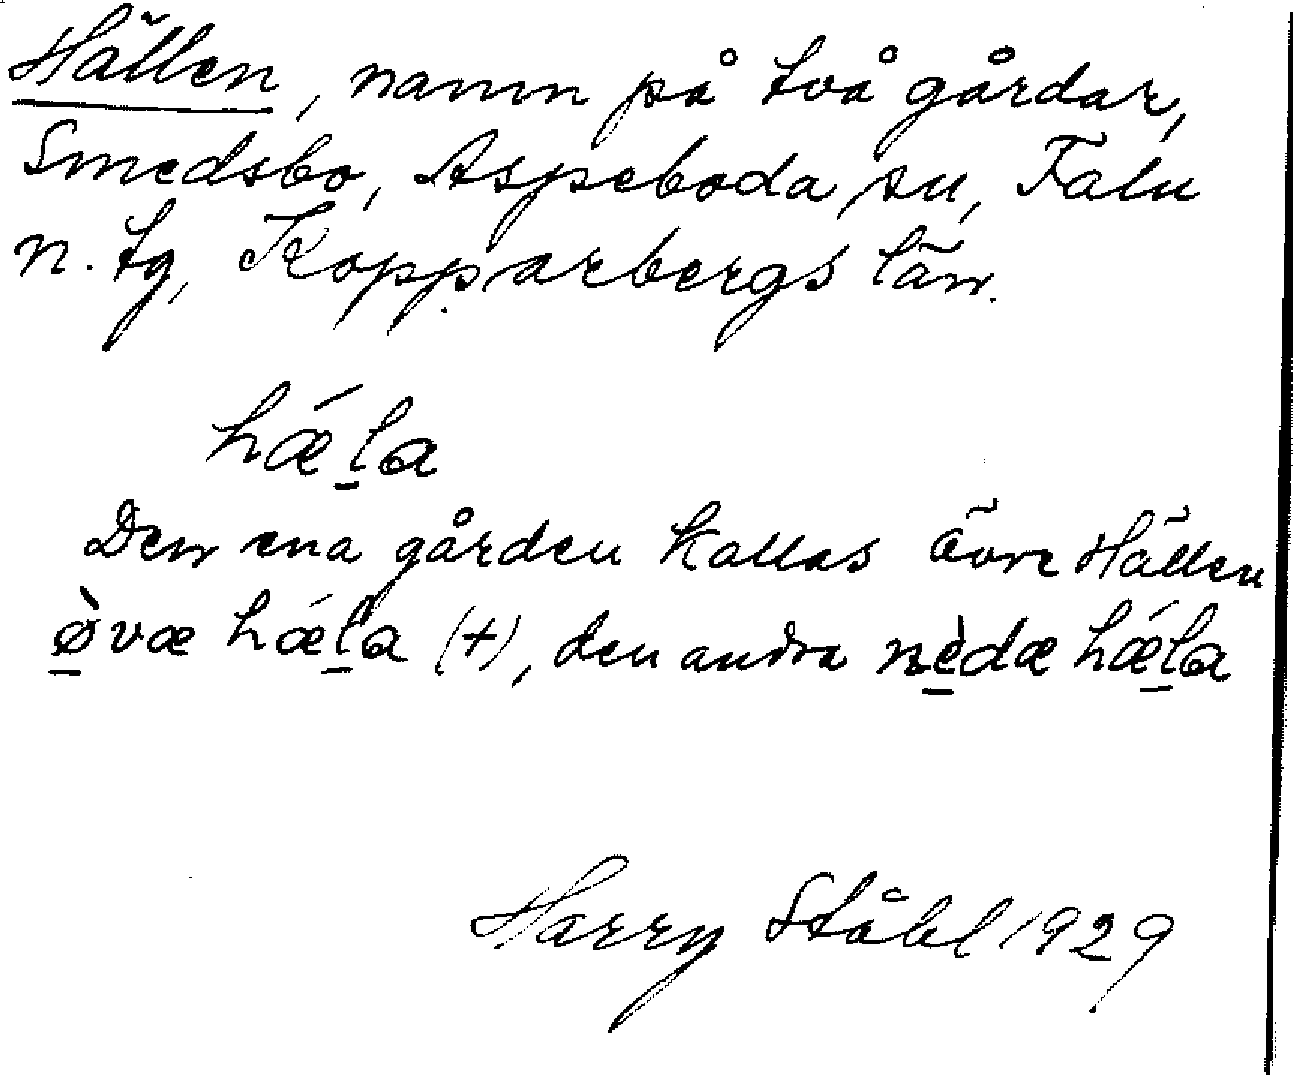 Hällen, namn på två gårdar,
Smedsbo, Aspeboda sn, Falu
n. tg, Kopparbergs län.
hǽl̠a
Den ena gården kallas Övre Hällen
ø̠̀væ hǽl̠a (+), den andra nè̠dæ hǽl̠a
Harry Ståhl 1929